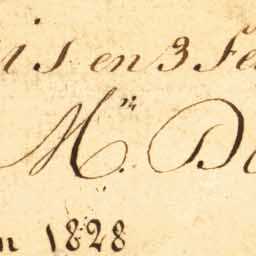 is en 3 Fe
Mr. D
n 1828